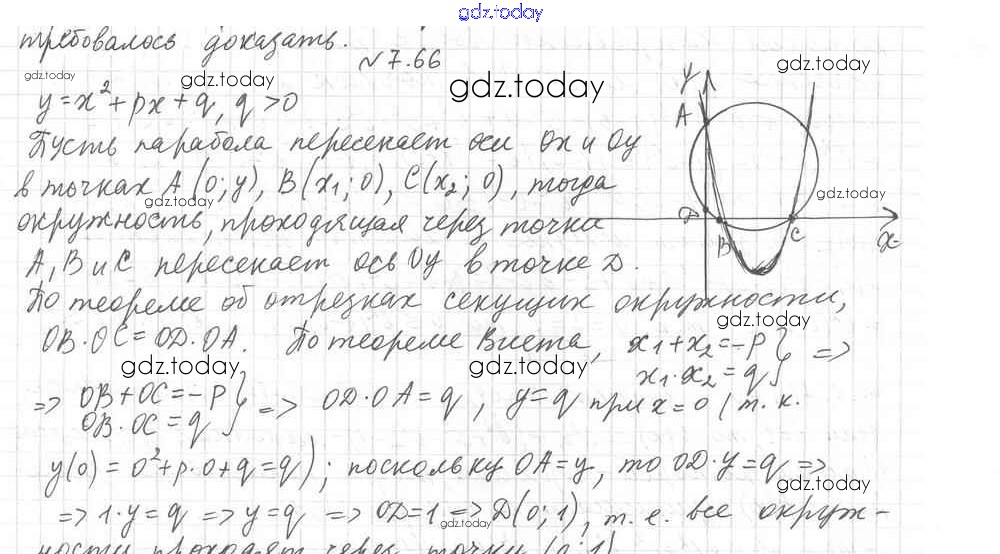 gdz.today
требовалось доказать.
№7.66
gdz.today
gdz.today
gdz.today
gdz.today
y=x²+px+q, q>0
Пусть парабола пересекает оси Ox и Oy
в точках A(0;y), B(x₁;0), C(x₂;0), тогда
gdz.today
gdz.today
окружность, проходящая через точки
A, B и C пересекает ось Oy в точке D.
y
A
D
B
C
x
По теореме об отрезках секущих окружности,
gdz.today
OB·OC=OD·OA. По теореме Виета, x₁+x₂=-p} =>
x₁·x₂=q
gdz.today
gdz.today
=> OB+OC=-p} => OD·OA=q, y=q при x=0 (т.к.
OB·OC=q
y(0)=0²+p·0+q=q); поскольку OA=y, то OD·y=q =>
gdz.today
=> 1·y=q => y=q => OD=1 => D(0;1), т.е. все окруж-
gdz.today
ности проходят через точку (0;1)